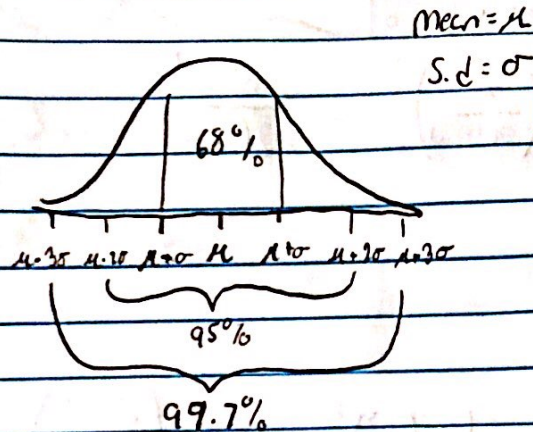 Mean = μ
S.d = σ
68%
μ-3σ μ-2σ μ-σ μ μ+σ μ+2σ μ+3σ
95%
99.7%